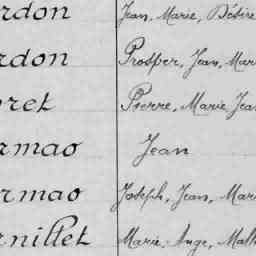 rdon Jean, Marie, Désiré
rdon Prosper, Jean, Mar
ret Pierre, Marie, Jean
rmao Jean
rmao Joseph, Jean, Mari
rnillet Marie, Ange, Math